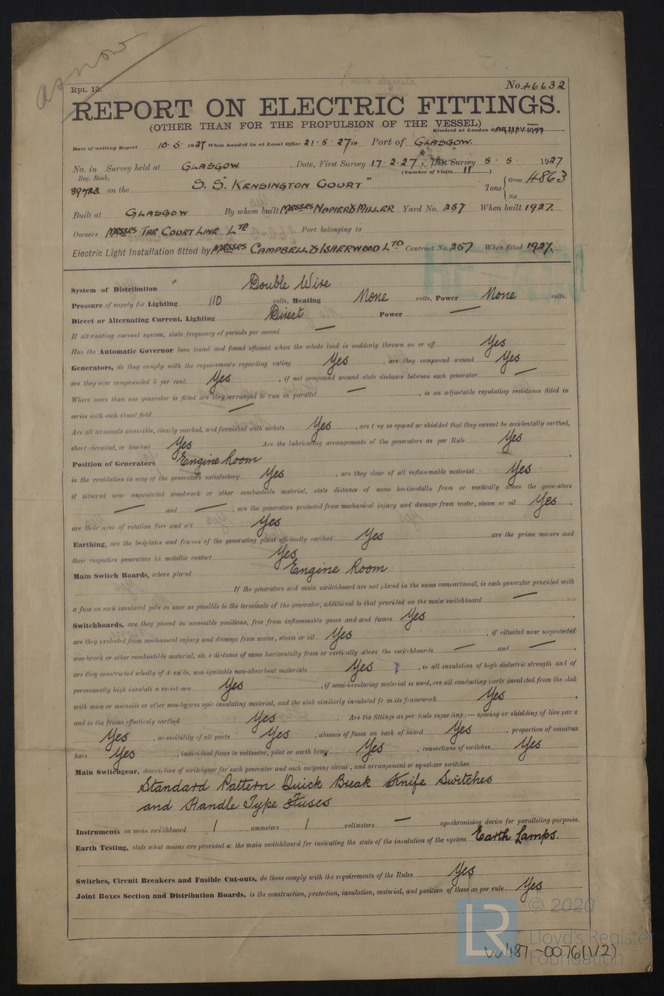 as now
Rpt. 13. No. 46632
REPORT ON ELECTRIC FITTINGS.
(OTHER THAN FOR THE PROPULSION OF THE VESSEL)
Received at London Office
Date of writing Report 10.5.1927 When handed in at Local Office 21.5.27 Port of GLASGOW.
No. in Survey held at GLASGOW. Date, First Survey 17.2.27, Last Survey 5.5.1927
Reg. Book. (Number of Visits 11)
89723 on the S.S. "KENSINGTON COURT" Tons { Gross 4863
Net
Built at GLASGOW By whom built MESSRS NAPIER & MILLER Yard No. 257 When built 1927.
Owners MESSRS THE COURT LINE LTD Port belonging to
Electric Light Installation fitted by MESSRS CAMPBELL & ISHERWOOD LTD Contract No. 257 When fitted 1927.
System of Distribution Double Wire
Pressure of supply for Lighting 110 volts, Heating None volts, Power None volts.
Direct or Alternating Current, Lighting Direct Power
If alternating current system, state frequency of periods per second —
Has the Automatic Governor been tested and found efficient when the whole load is suddenly thrown on or off Yes
Generators, do they comply with the requirements regarding rating Yes, are they compound wound Yes
are they over compounded 5 per cent. Yes, if not compound wound state distance between each generator —
Where more than one generator is fitted are they arranged to run in parallel —, is an adjustable regulating resistance fitted in
series with each shunt field —
Are all terminals accessible, clearly marked, and furnished with sockets Yes, are they so spaced or shielded that they cannot be accidentally earthed,
short circuited, or touched Yes Are the lubricating arrangements of the generators as per Rule Yes
Position of Generators Engine Room
is the ventilation in way of the generators satisfactory Yes, are they clear of all inflammable material Yes
if situated near unprotected woodwork or other combustible material, state distance of same horizontally from or vertically above the generators
— and —, are the generators protected from mechanical injury and damage from water, steam or oil Yes,
are their axes of rotation fore and aft Yes
Earthing, are the bedplates and frames of the generating plant efficiently earthed Yes are the prime movers and
their respective generators in metallic contact Yes
Main Switch Boards, where placed Engine Room
If the generators and main switchboard are not placed in the same compartment, is each generator provided with
a fuse on each insulated pole as near as possible to the terminals of the generator, additional to that provided on the main switchboard —
Switchboards, are they placed in accessible positions, free from inflammable gases and acid fumes Yes
are they protected from mechanical injury and damage from water, steam or oil Yes, if situated near unprotected
woodwork or other combustible material, state distance of same horizontally from or vertically above the switchboards — and —
are they constructed wholly of durable, non-ignitable non-absorbent materials Yes, is all insulation of high dielectric strength and of
permanently high insulation resistance Yes, if semi-insulating material is used, are all conducting parts insulated from the slab
with mica or micanite or other non-hygroscopic insulating material, and the slab similarly insulated from its framework Yes
and is the frame effectively earthed Yes Are the fittings as per Rule regarding:— spacing or shielding of live parts
Yes, accessibility of all parts Yes, absence of fuses on back of board Yes, proportion of omnibus
bars Yes, individual fuses to voltmeter, pilot or earth lamp Yes, connections of switches Yes
Main Switchgear, description of switchgear for each generator and each outgoing circuit, and arrangement of equalizer switches
Standard Pattern Quick Break Knife Switches
and Handle Type Fuses
Instruments on main switchboard 1 ammeters 1 voltmeters — synchronising device for paralleling purposes.
Earth Testing, state what means are provided at the main switchboard for indicating the state of the insulation of the system Earth Lamps.
Switches, Circuit Breakers and Fusible Cut-outs, do these comply with the requirements of the Rules Yes
Joint Boxes Section and Distribution Boards, is the construction, protection, insulation, material, and position of these as per rule Yes
© 2020
LR Lloyd's Register
Foundation
W487-0076(1/2)